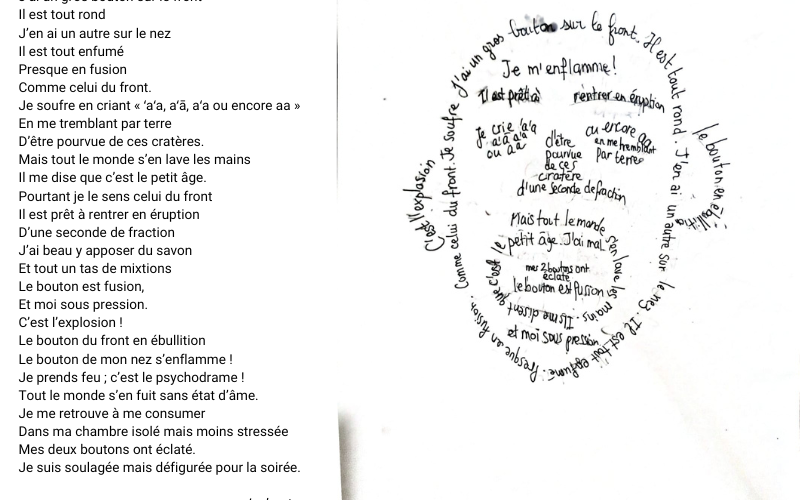 J'ai un gros bouton sur le front
Il est tout rond
J'en ai un autre sur le nez
Il est tout enfumé
Presque en fusion
Comme celui du front.
Je soufre en criant « 'a'a, a'ā, a'a ou encore aa »
En me tremblant par terre
D'être pourvue de ces cratères.
Mais tout le monde s'en lave les mains
Il me dise que c'est le petit âge.
Pourtant je le sens celui du front
Il est prêt à rentrer en éruption
D'une seconde de fraction
J'ai beau y apposer du savon
Et tout un tas de mixtions
Le bouton est fusion,
Et moi sous pression.
C'est l'explosion !
Le bouton du front en ébullition
Le bouton de mon nez s'enflamme !
Je prends feu ; c'est le psychodrame !
Tout le monde s'en fuit sans état d'âme.
Je me retrouve à me consumer
Dans ma chambre isolé mais moins stressée
Mes deux boutons ont éclaté.
Je suis soulagée mais défigurée pour la soirée.
J'ai un gros bouton sur le front. Il est tout rond. J'en ai un autre sur le nez. Il est tout enfumé. Presque en fusion. Comme celui du front. Je soufre
Je m'enflamme!
Il est prêt à rentrer en éruption
Je crie 'a'a
a'ā a'a
ou aa
ou encore aa
en me tremblant
par terre
d'être
pourvue
de ces
cratère
d'une seconde de fraction
Mais tout le monde s'en lave les mains. Ils me disent que c'est le petit âge. J'ai mal
mes 2 boutons ont
éclaté
le bouton est fusion
et moi sous pression
C'est l'explosion
le bouton en ébullition